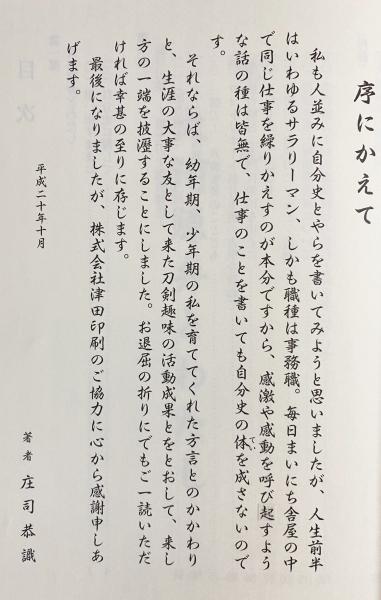 序にかえて
私も人並みに自分史とやらを書いてみようと思いましたが、人生前半
はいわゆるサラリーマン、しかも職種は事務職。毎日まいにち舎屋の中
で同じ仕事を繰りかえすのが本分ですから、感激や感動を呼び起すよう
な話の種は皆無で、仕事のことを書いても自分史の体を成さないので
てい
す。
それならば、幼年期、少年期の私を育ててくれた方言とのかかわり
と、生涯の大事な友として来た刀剣趣味の活動成果とをとおして、来し
方の一端を披瀝することにしました。お退屈の折りにでもご一読いただ
ければ幸甚の至りに存じます。
最後になりましたが、株式会社津田印刷のご協力に心から感謝申しあ
げます。
平成二十年十月
著者 庄司恭識